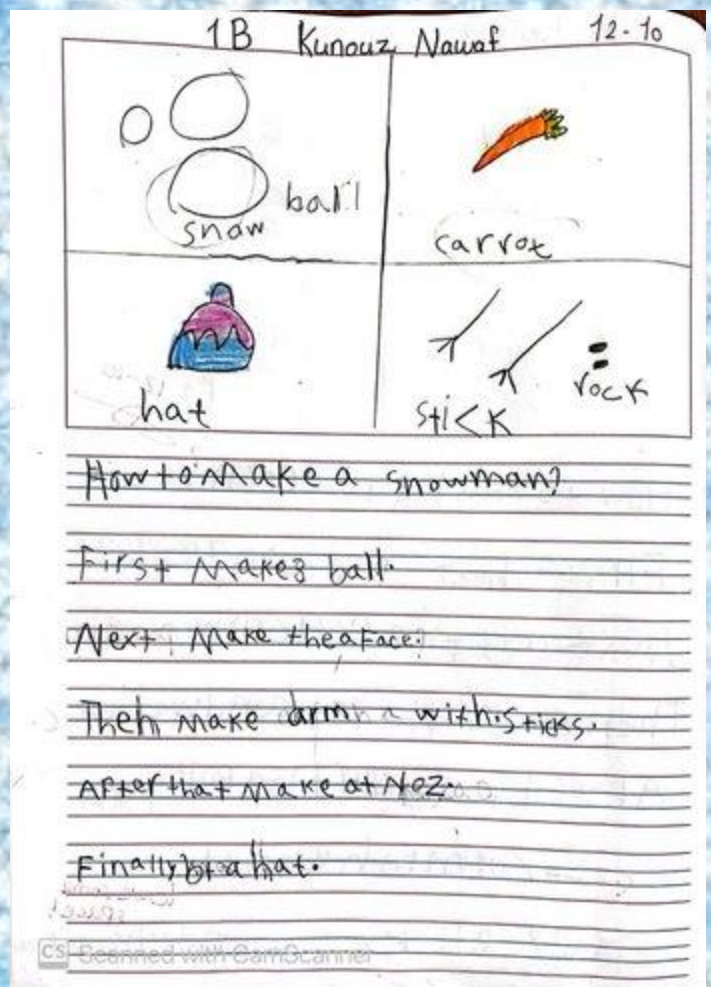 1B Kunouz Nawaf 12-10
ball
snow
carrot
hat
stick
rock
How to make a snowman?
First make 3 ball.
Next make the a face.
Then make arm with sticks.
After that make at Noz.
Finally a hat.
CS Scanned with CamScanner